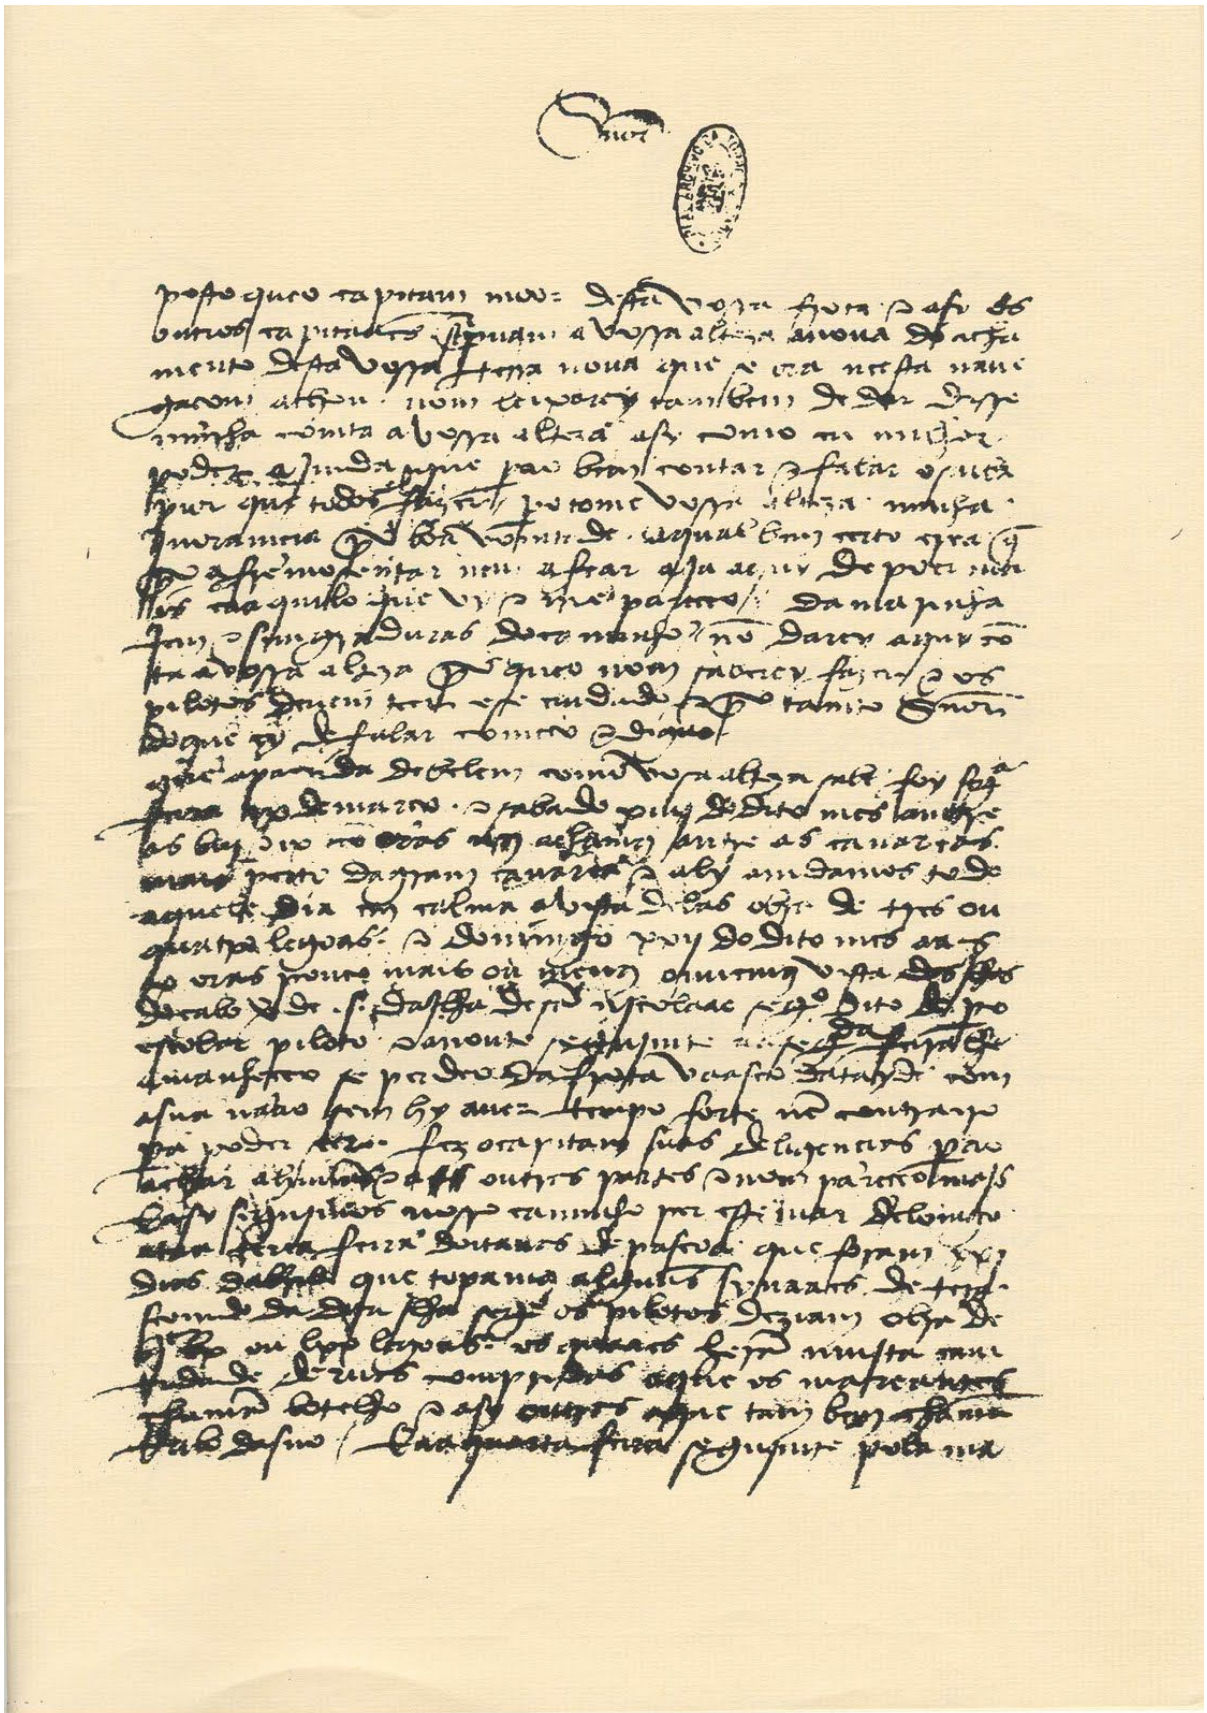 Snor
posto queo capitam moor desta vossa frota e asy os
outros capitaães screpuam a vossa alteza a noua do acha
mento desta vossa terra noua que se ora neesta naue
gaçom achou. nom leixarey tambem de dar disso
minha comta a vossa alteza asy como eu milhor
poder ajmda que pera o bem contar e falar o saiba
pior que todos fazer. pero tome vossa alteza minha
jnoramçia por boa vomtade. aqual bem çerto crea que
por afremosentar nem afear aja aquy de poer mais
caa aquilo que vy e me pareçeo. da marinha
jem e simgraduras do caminho nõ darey aquy cõ
ta a vossa alteza por que o nom saberey fazer e os
pilotos deuem teer ese cuidado e por tamto Snor
do que ey de falar começo e diguo
que a partida de belem como vosa alteza sabe foy segª
feira ix de março. e sabado xiiij do dito mes amtre
as biij e ix oras nos achamos amtre as canareas
mais perto da gram canarea e aly amdamos todo
aquele dia em calma a vista delas obra de tres ou
quatro legoas. e domingo xxij do dito mes aas
x oras pouco mais ou menos ouuemos vista das jlhas
do cabo verde .s. da jlha de sã njcolaao segº dito de po
escolar piloto. e a noute segujmte aa segda feira lhe
amanheçeo se perdeo da frota vaasco datayde com
a sua naao sem hy auer tempo forte nẽ contrairo
pa poder seer. fez o capitam suas deligençias pera o
achar a huũas e a outras partes e nom pareçeo majs
E asy segujmos nosso caminho per este mar de lomgo
ataa terça feira doitauas de pascoa que foram xxj
dias dabril que topamos alguũs synaaes de tera
seemdo da dita jlha segº os pilotos deziam obra de
bjc lx ou lxx legoas. os quaaes heram mujta camti
dade deruas compridas a que os mareantes
chamã botelho e asy outras a que tambem chamã
Rabo dasno. E aa quarta feira segujmte pola ma